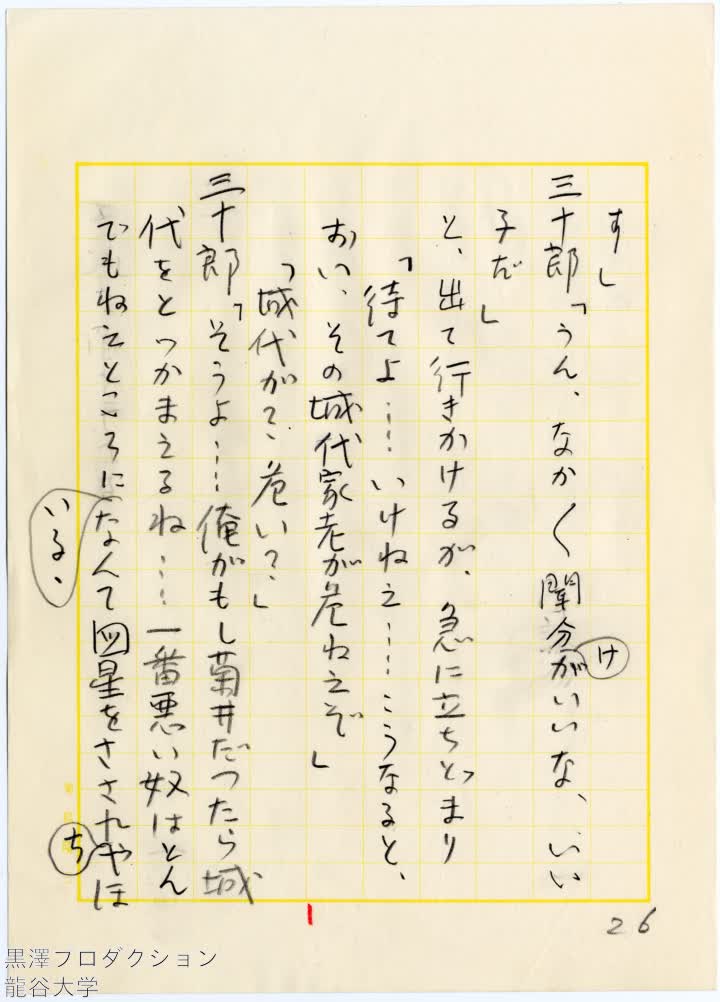 す」
三十郎「うん、なか〱聞分がいいな、いい
け
子だ」
と、出て行きかけるが、急に立ちどまり
「待てよ……いけねえ……こうなると、
おい、その城代家老が危ねえぞ」
「城代がて、危い？」
三十郎「そうよ……俺がもし菊井だつたら城
代をとつかまえるね……一番悪い奴はとん
でもねえところになんて図星をさされやほ
いる、
ち
26
黒澤プロダクション
龍谷大学